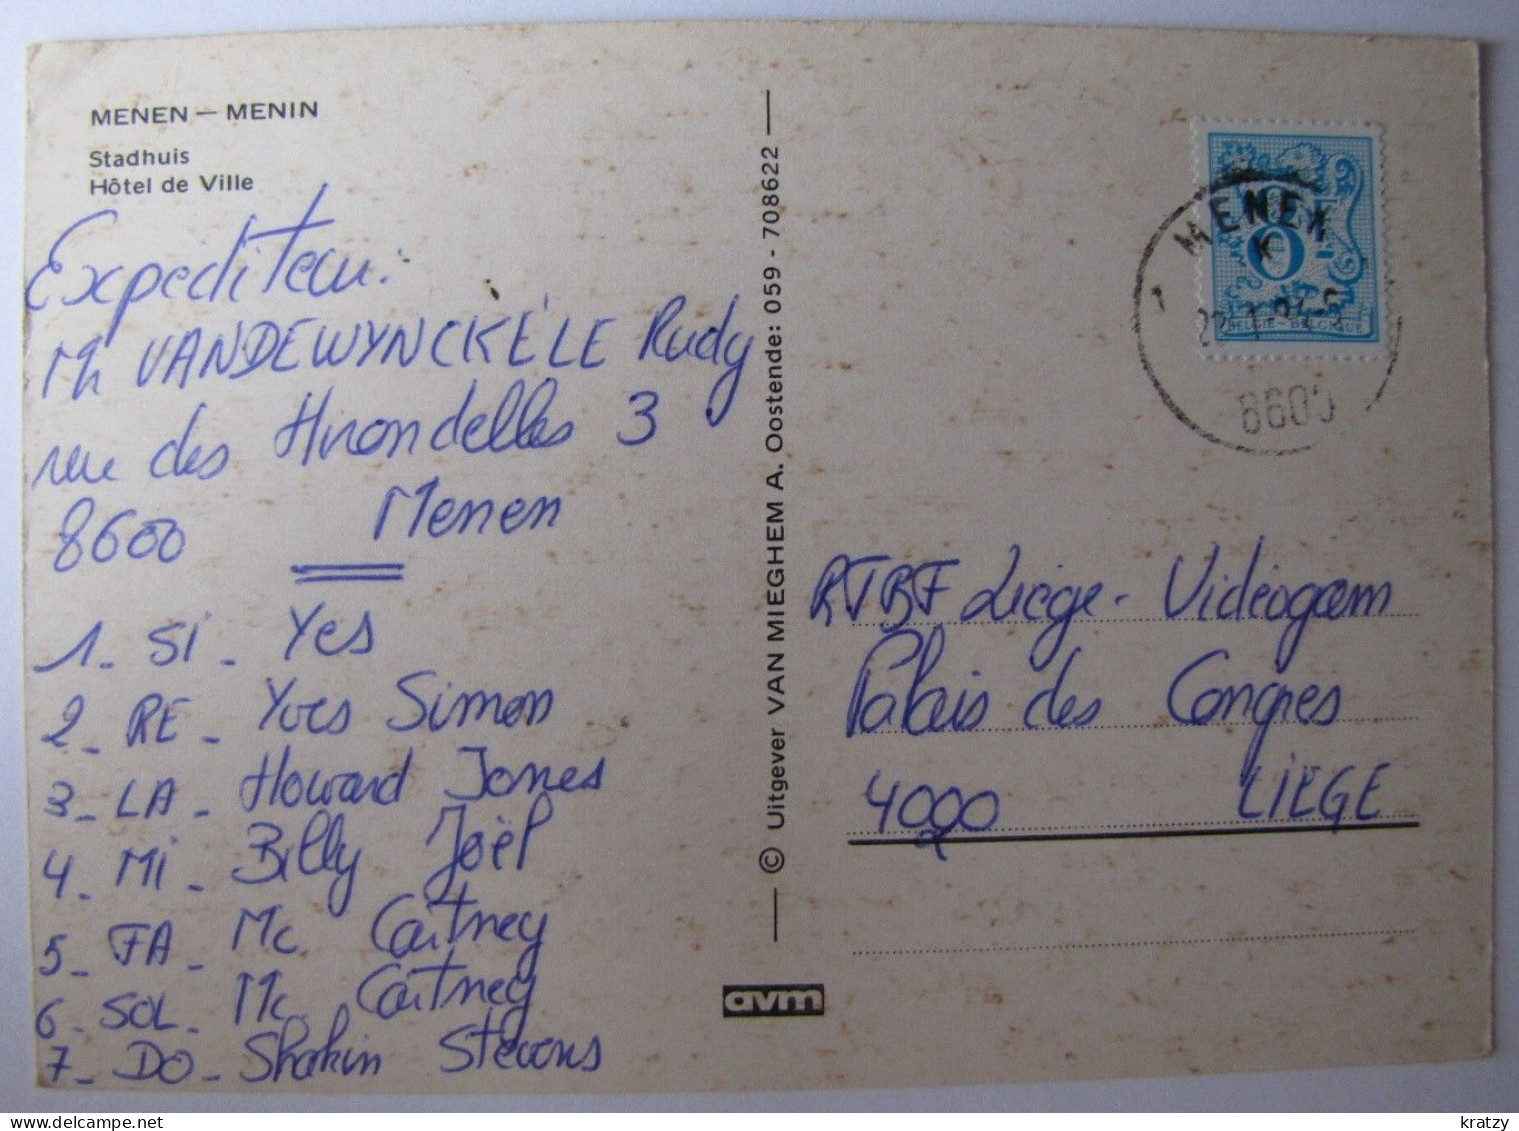 MENEN — MENIN
Stadhuis
Hôtel de Ville
Expéditeur:
Mr VANDEWYNCKÈLE Rudy
rue des Hirondelles 3
8600 Menen
1_ Si _ Yes
2_ RE _ Yves Simon
3_ LA _ Howard Jones
4_ Mi _ Billy Joël
5_ FA _ Mc. Caitney
6_ SOL _ Mc. Caitney
7_ DO _ Shakin Stevens
© Uitgever VAN MIEGHEM A. Oostende: 059 - 708622
avm
MENEN
K
BELGIE - BELGIQUE
8600
RTBF Liège - Vidéogam
Palais des Congres
4000 LIEGE
kratzy